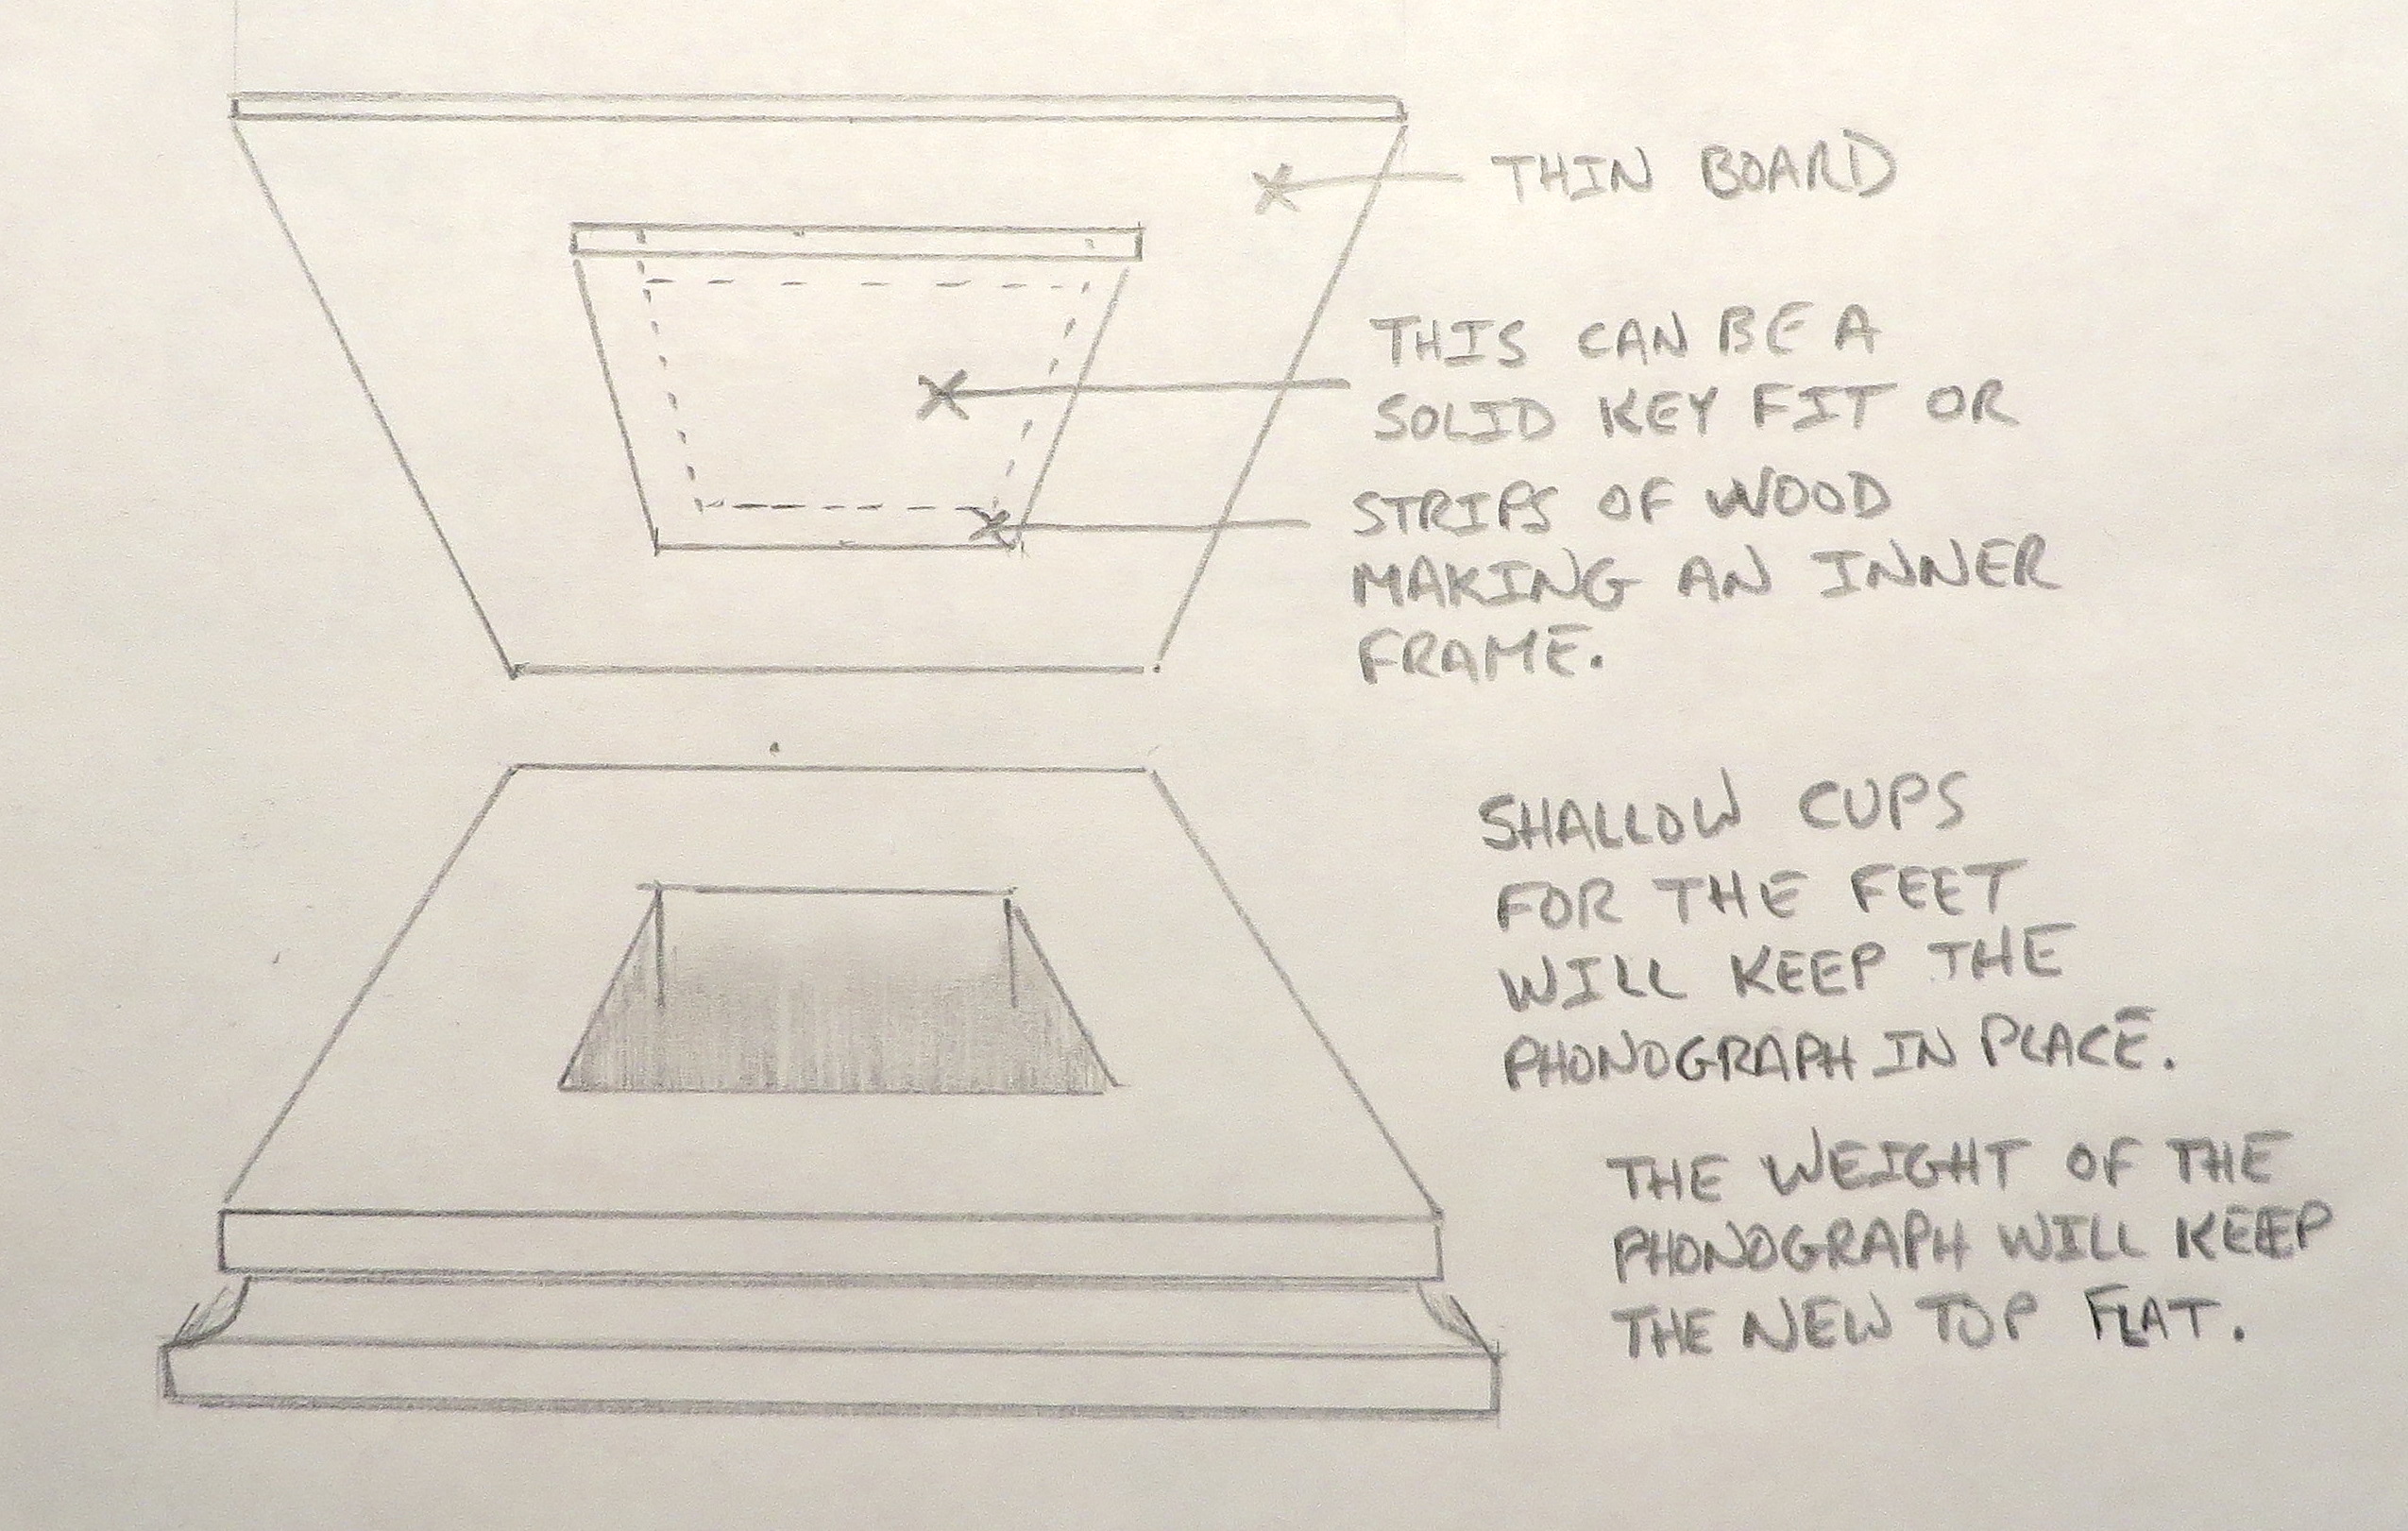 THIN BOARD
THIS CAN BE A
SOLID KEY FIT OR
STRIPS OF WOOD
MAKING AN INNER
FRAME.
SHALLOW CUPS
FOR THE FEET
WILL KEEP THE
PHONOGRAPH IN PLACE.
THE WEIGHT OF THE
PHONOGRAPH WILL KEEP
THE NEW TOP FLAT.